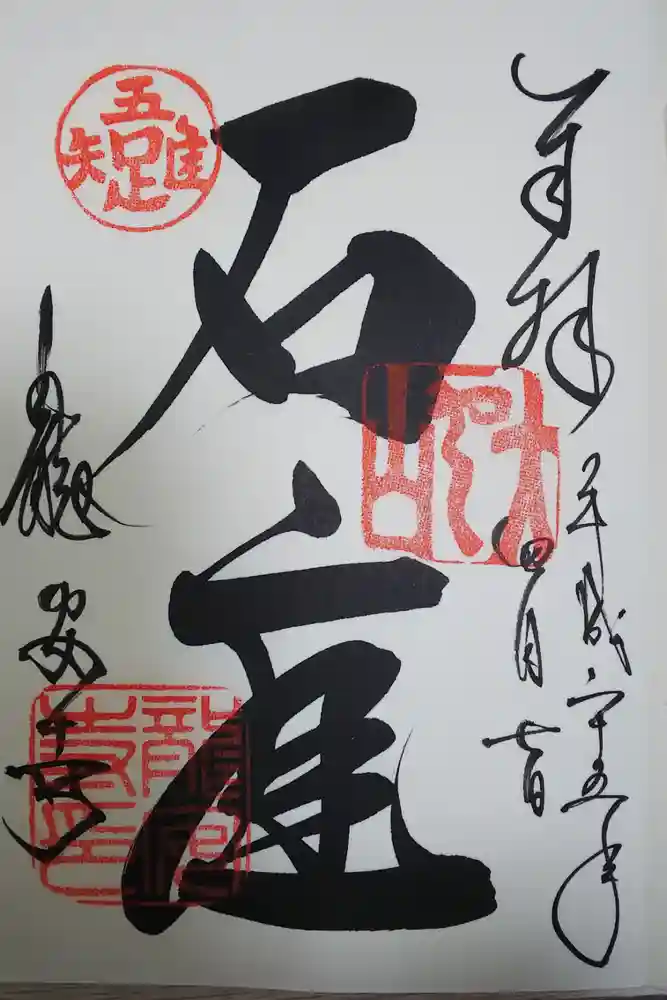 奉拝
平成二十五年
四月七日
石庭
大雲山
吾唯足知
龍安寺
龍安寺印